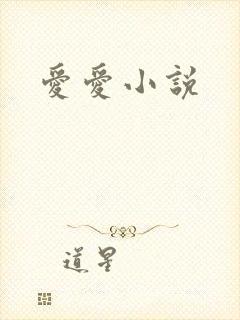 愛愛小說
道星